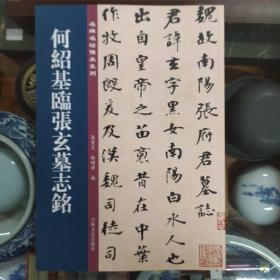 名碑名帖傳承系列
何紹基臨張玄墓志銘
孫寶文 編
吉林文史出版社
魏故南陽張府君墓誌
君諱玄字黑女南陽白水人也
出自皇帝之苗裔昔在中葉
作牧周殷爰及漢魏司徒司